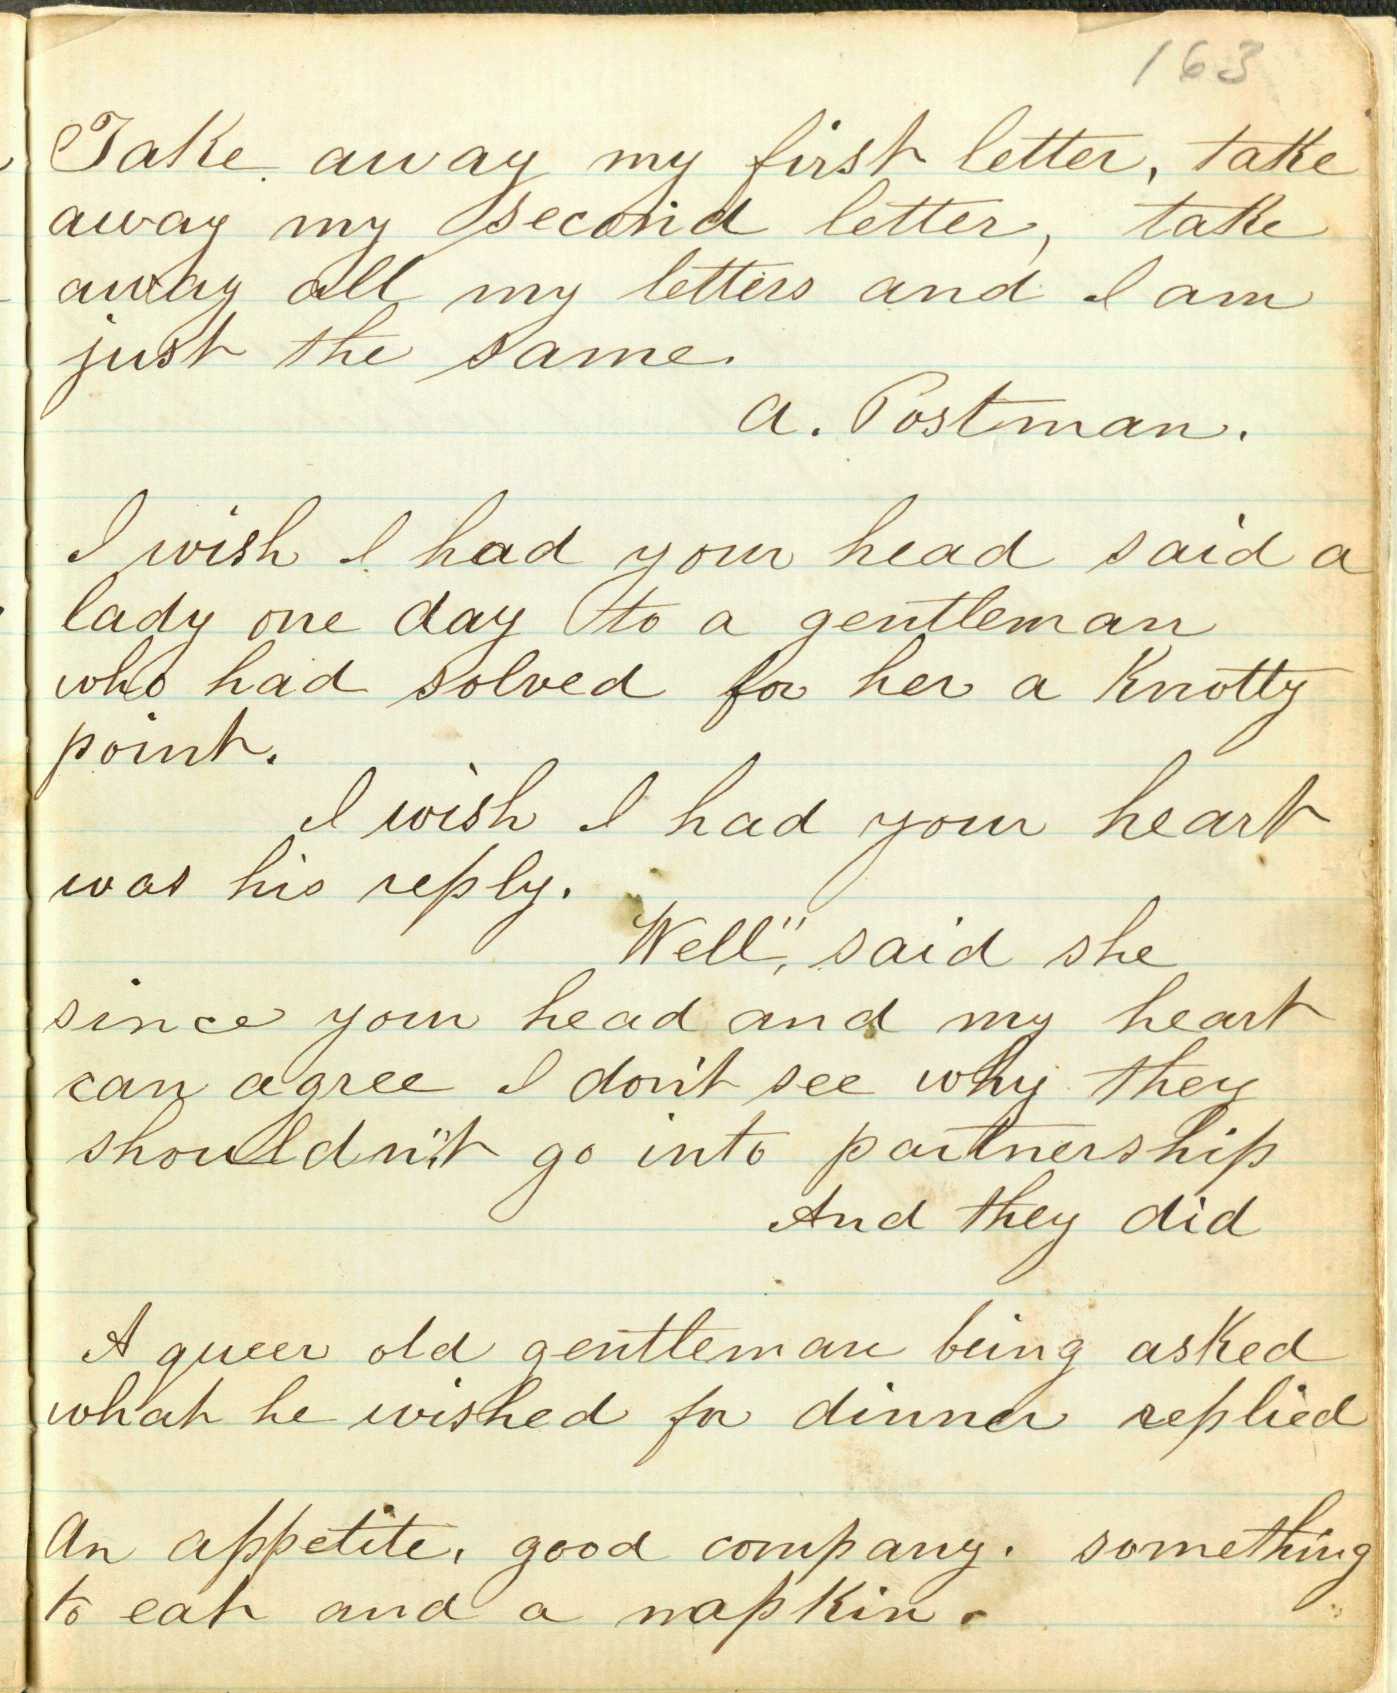 163
Take away my first letter, take
away my second letter, take
away all my letters and I am
just the same.
A. Postman.
I wish I had your head said a
lady one day to a gentleman
who had solved for her a Knotty
point.
I wish I had your heart
was his reply.
Well", said she
since your head and my heart
can agree I don't see why they
shouldn't go into partnership
And they did
A queer old gentleman being asked
what he wished for dinner replied
An appetite, good company. something
to eat and a napkin.